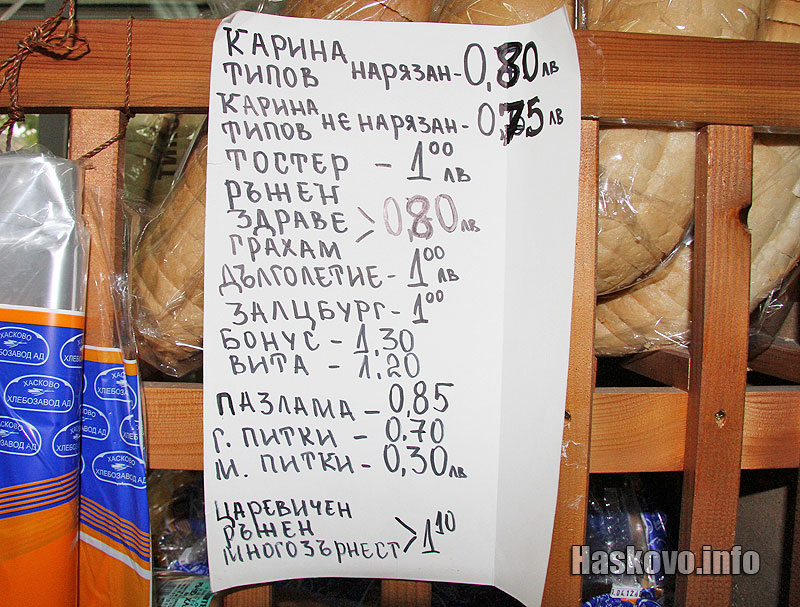 КАРИНА
ТИПОВ НАРЯЗАН - 0,80 ЛВ
КАРИНА
ТИПОВ НЕ НАРЯЗАН - 0,75 ЛВ
ТОСТЕР - 1 00 ЛВ
РЪЖЕН
ЗДРАВЕ > 0,80 ЛВ
ГРАХАМ
ДЪЛГОЛЕТИЕ - 1 00 ЛВ
ЗАЛЦБУРГ - 1 00
БОНУС - 1,30
ВИТА - 1,20
ПАЗЛАМА - 0,85
Г. ПИТКИ - 0,70
М. ПИТКИ - 0,30 ЛВ
ЦАРЕВИЧЕН
РЪЖЕН
МНОГОЗЪРНЕСТ > 1 10
ХАСКОВО
ХЛЕБОЗАВОД АД
ХАСКОВО
ХЛЕБОЗАВОД АД
Haskovo.info